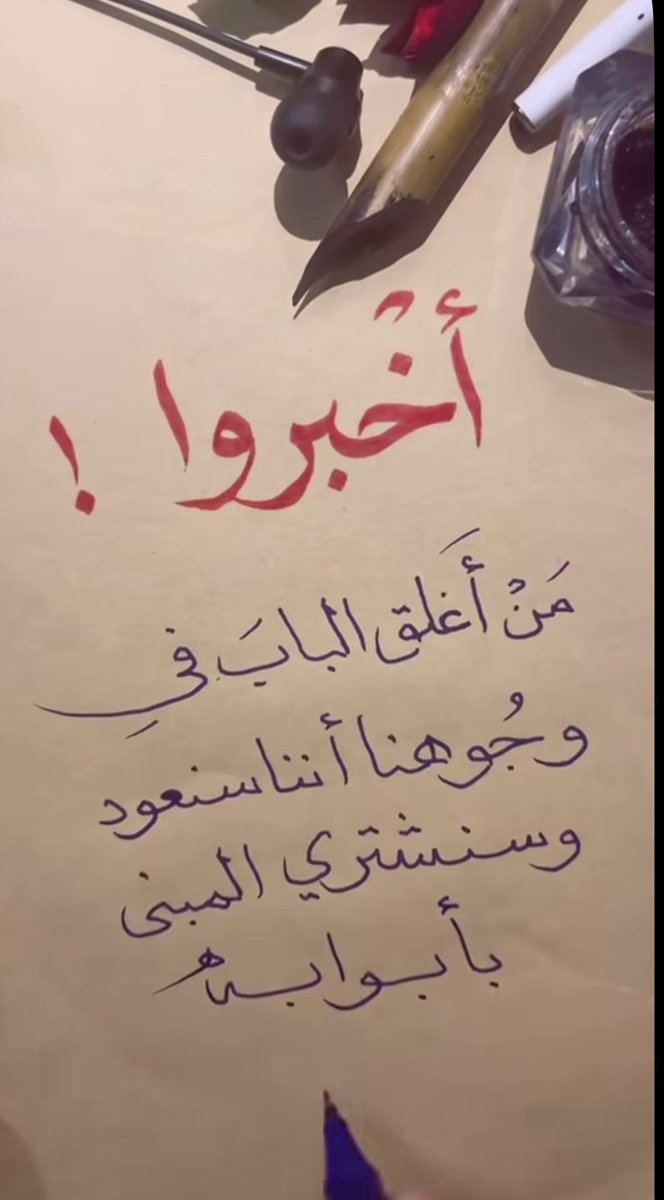 أخْبروا !
مَنْ أَغلق البابَ في
وجُوهنا أننا سنعود
وسنشتري المبنى
بأبوابه